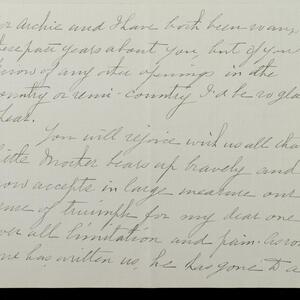 or Archie and I have both been wavin
these past years about you but if you
know of any other openings in the
country or semi-country I'd be so gla
hear.
You will rejoice with us all tha
little Mother bears up bravely and
now accepts in large measure our
sense of triumph for my dear one
over all limitation and pain.
one has written us, he has gone to a